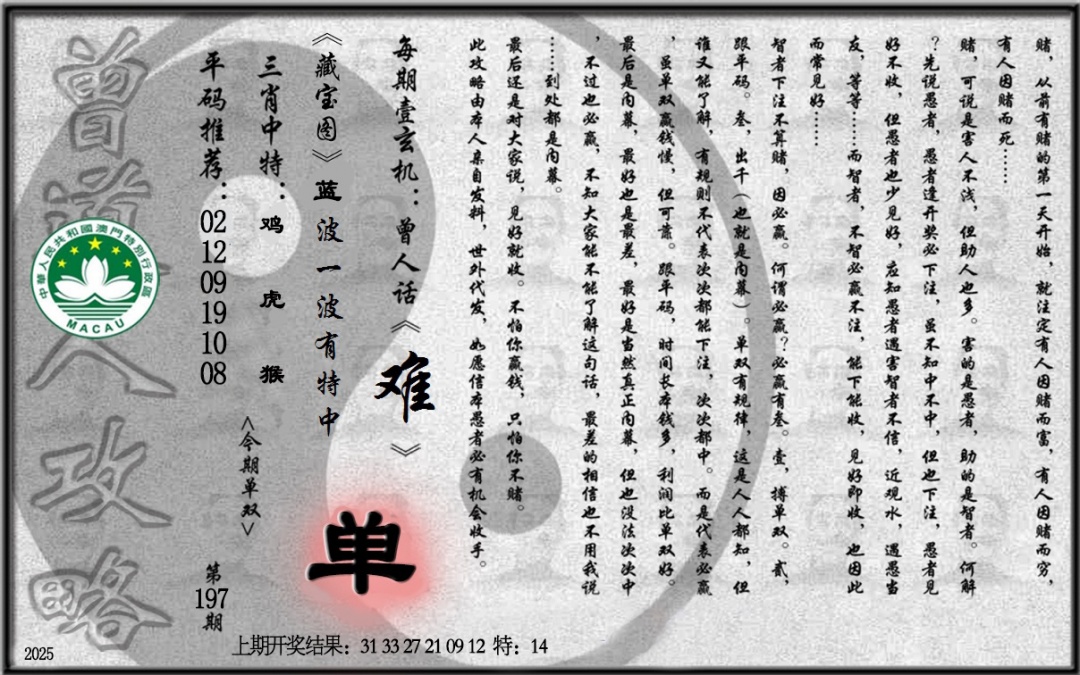 赌，从前有赌的第一天开始，就注定有人因赌而富，有人因赌而穷，
有人因赌而死……
赌，可说是害人不浅，但助人也多。害的是愚者，助的是智者。何解
？先说愚者，愚者逢开奖必下注，虽不知中不中，但也下注，愚者见
好不收，但愚者也少见好，应知愚者遇害智者不信，近观水，遇愚当
友，等等……而智者，不智必赢不注，能下能收，见好即收，也因此
而常见好……
智者下注不算赌，因必赢。何谓必赢？必赢有叁。壹，搏单双。贰，
跟平码。叁，出千（也就是内幕）。单双有规律，这是人人都知，但
谁又能了解，有规则不代表次次都能下注，次次都中。而是代表必赢
，虽单双赢钱慢，但可靠。跟平码，时间长本钱多，利润比单双好。
最后是内幕，最好也是最差，最好是当然真正内幕，但也没法次次中
，不过也必赢，不知大家能不能了解这句话，最差的相信也不用我说
……到处都是内幕。
最后还是对大家说，见好就收。不怕你赢钱，只怕你不赌。
此攻略由本人亲自发料，世外代发，如愿信本愚者必有机会收手。
每期壹玄机：曾人话《难》
《藏宝图》蓝波一波有特中
三肖中特：鸡 虎 猴
平码推荐：02 12 09 19 10 08
<今期单双>
单
第197期
曾道人攻略
中華人民共和國澳門特別行政區
MACAU
上期开奖结果：31 33 27 21 09 12 特：14
2025